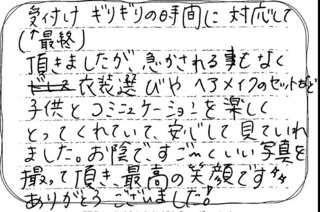 受付け ギリギリの時間に 対応して
(↑最終)
頂きましたが、急かされる事もなく
衣装選びや ヘアメイクのセットなど
子供と コミュニケーションを 楽しく
とってくれていて、安心して 見ていれ
ました。お陰で、すご〜くいい 写真を
撮って 頂き、最高の 笑顔です☆☆
ありがとう ございました!